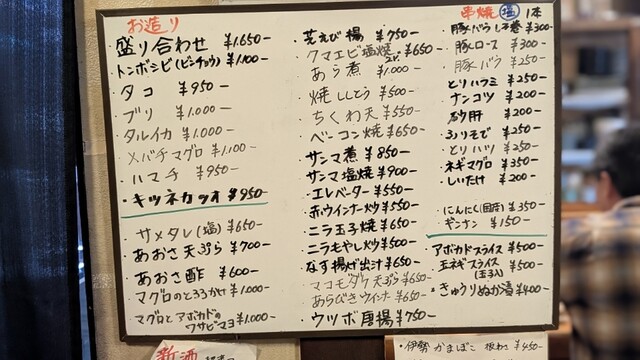 お造り
・盛り合わせ ¥1.650-
・トンボシビ(ビンチョウ) ¥1.100-
・タコ ¥950-
・ブリ ¥1.000-
・タルイカ ¥1.000-
・メバチマグロ ¥1.100-
・ハマチ ¥950-
・キツネカツオ ¥950-
・サメタレ(塩) ¥650-
・あおさ天ぷら ¥700-
・あおさ酢 ¥600-
・マグロのとろろかけ ¥1.000-
・マグロとアボカドの
ワサビマヨ ¥1.000-
・芝えび揚 ¥750-
・クマエビ塩焼 ¥650-
・あら煮 ¥1.000-
・焼ししとう ¥500-
・ちくわ天 ¥550-
・ベーコン焼 ¥650-
・サンマ煮 ¥850-
・サンマ塩焼 ¥900-
・エレベーター ¥550-
・赤ウインナー炒 ¥550-
・ニラ玉子焼 ¥650-
・ニラもやし炒 ¥500-
・なす揚げ出汁 ¥650-
・マコモダケ天ぷら ¥650-
・あらびきウインナー ¥650-
・ウツボ唐揚 ¥750-
串焼 塩 1本
・豚バラしそ巻 ¥300-
・豚ロース ¥300-
・豚バラ ¥250-
・とりハラミ ¥250-
・ナンコツ ¥200-
・砂肝 ¥200-
・ふりそで ¥250-
・とりハツ ¥250-
・ネギマグロ ¥350-
・しいたけ ¥200-
・にんにく(国産) ¥350-
・ギンナン ¥150-
・アボカドスライス ¥500-
・玉ネギスライス ¥500-
(玉子入)
・きゅうりぬか漬 ¥400-
新酒
・伊勢かまぼこ 板わさ ¥450-